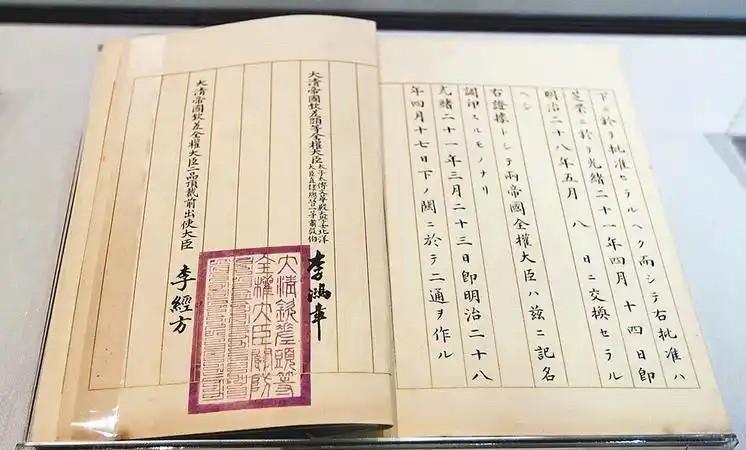 下ニ於テ批准セラルヘク而シテ右批准ハ
芝罘ニ於テ光緒二十一年四月十四日即
明治二十八年五月八日ニ交換セラル
ヘシ
右證據トシテ兩帝國全權大臣ハ茲ニ記名
調印スルモノナリ
光緒二十一年三月二十三日即明治二十八
年四月十七日下ノ關ニ於テ二通ヲ作ル
大清帝國欽差頭等全權大臣太子太傅文華殿大學士北洋
大臣直隸總督一等肅毅伯
李鴻章
大清帝國欽差全權大臣二品頂戴前出使大臣
李經方
大清欽差頭等
全權大臣關防